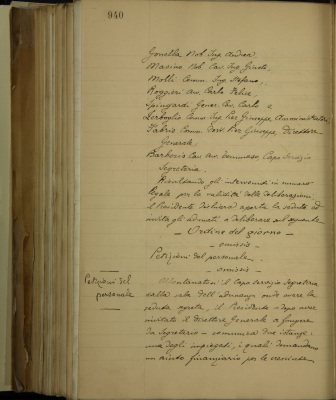 940
Gonella Nob. Ing. Andrea
Masino Nob. Cav. Ing. Giusto,
Molli Comm. Ing. Stefano,
Roggieri Avv. Carlo Felice,
Spingardi Gener. Cav. Carlo e
Zerboglio Comm. Ing. Pier Giuseppe Amministratori
Fabris Comm. Dott. Pier Giuseppe, Direttore
Generale;
Barberis Cav. Avv. Domenico Capo Servizio
Segreteria.
Risultando gli intervenuti in numero
legale per la validità delle deliberazioni
il Presidente dichiara aperta la seduta ed
invita gli adunati a deliberare sul seguente
- Ordine del giorno -
- omissis -
Petizioni del personale.
- omissis -
Petizioni del
personale
Allontanatosi il Capo Servizio Segreteria
dalla sala dell'adunanza onde avere la
seduta segreta, il Presidente - dopo avere
invitato il Direttore Generale a fungere
da Segretario - comunica due istanze,
una degli impiegati, i quali domandano
un aiuto finanziario per le